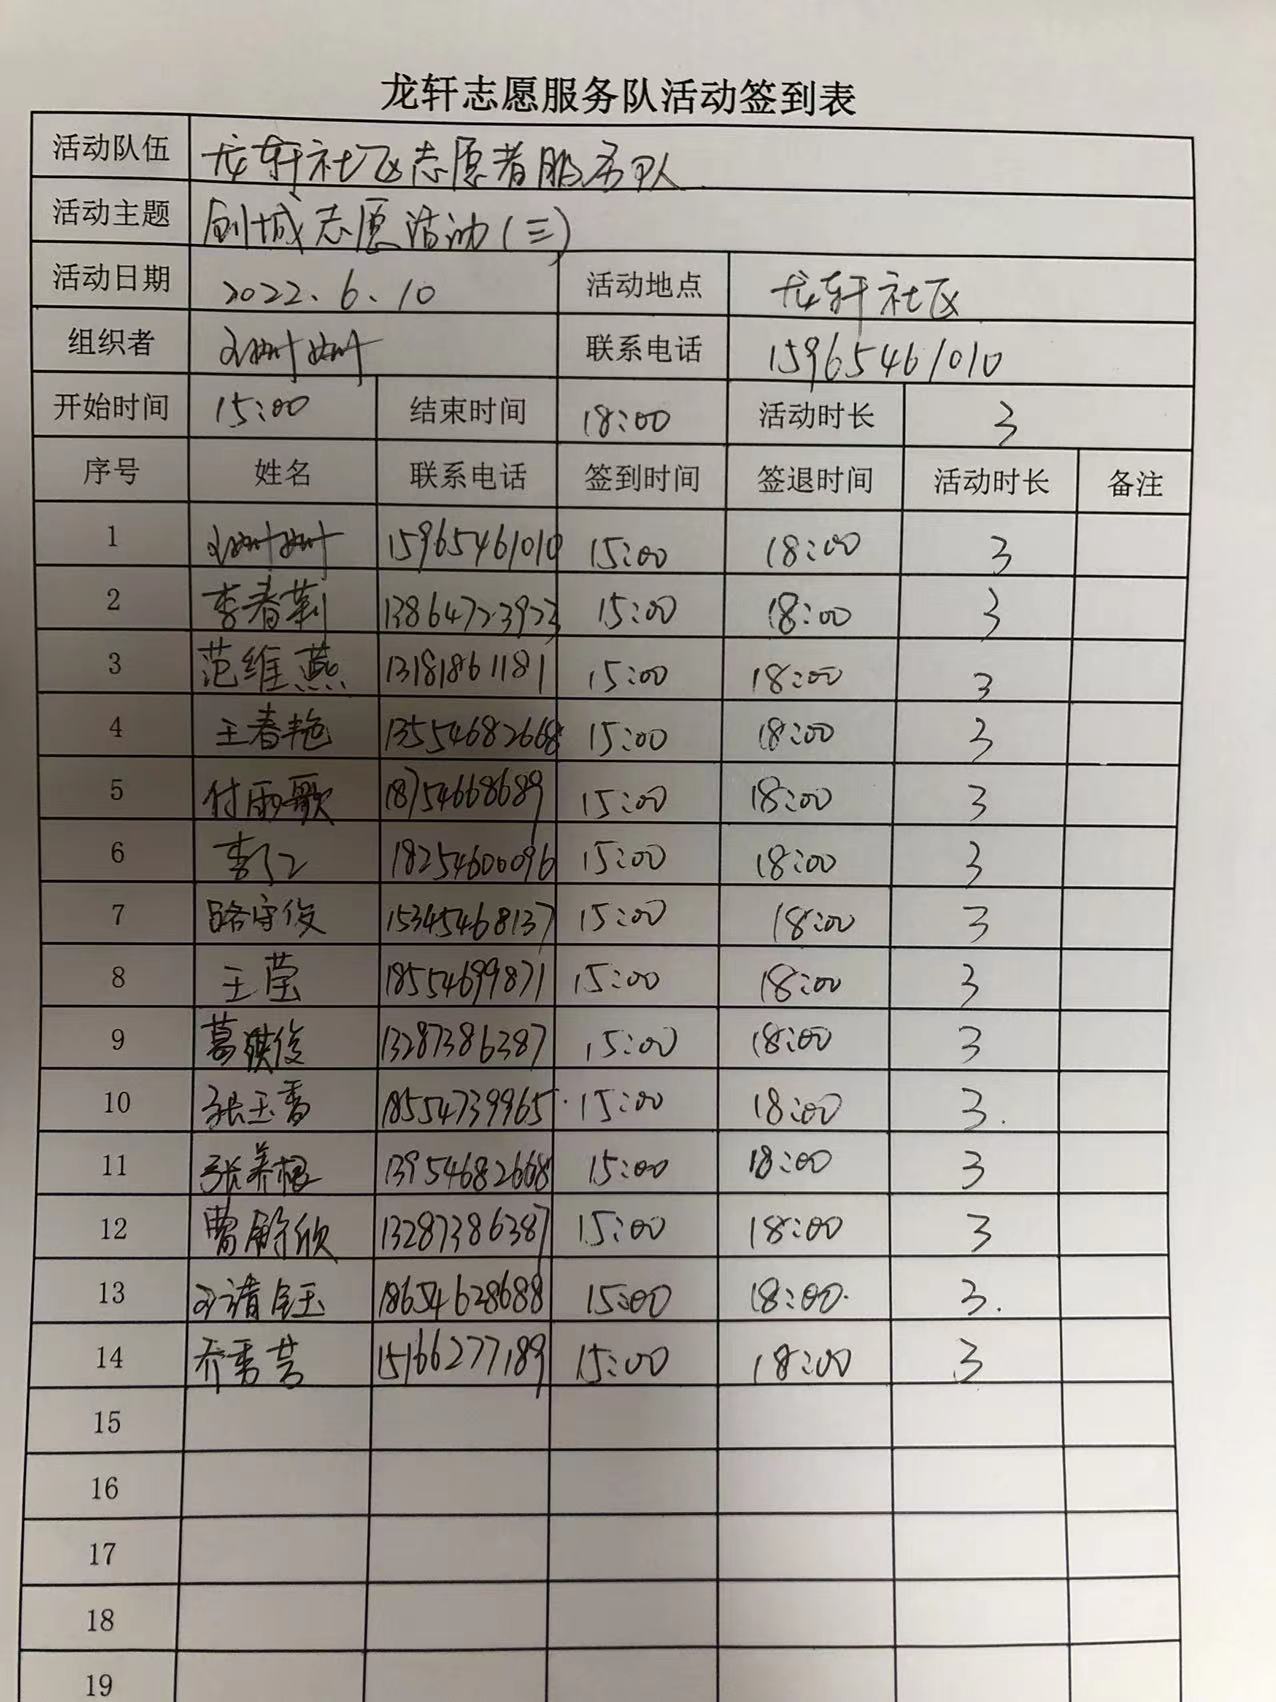 龙轩志愿服务队活动签到表
活动队伍 龙轩社区志愿者服务队
活动主题 创城志愿活动(三)
活动日期 2022.6.10 活动地点 龙轩社区
组织者 联系电话 15965461010
开始时间 15:00 结束时间 18:00 活动时长 3
序号 姓名 联系电话 签到时间 签退时间 活动时长 备注
1 15965461010 15:00 18:00 3
2 李春莉 13864723923 15:00 18:00 3
3 范维燕 13181861181 15:00 18:00 3
4 王春艳 13554682668 15:00 18:00 3
5 付雨歌 18754668689 15:00 18:00 3
6 18254600096 15:00 18:00 3
7 路守俊 15345468137 15:00 18:00 3
8 王莹 18554699871 15:00 18:00 3
9 葛祺俊 13287386387 15:00 18:00 3
10 张玉香 18554739965 15:00 18:00 3.
11 张养根 13954682668 15:00 18:00 3
12 13287386387 15:00 18:00 3
13 18654628688 15:00 18:00. 3.
14 乔秀芸 15166277189 15:00 18:00 3
15
16
17
18
19